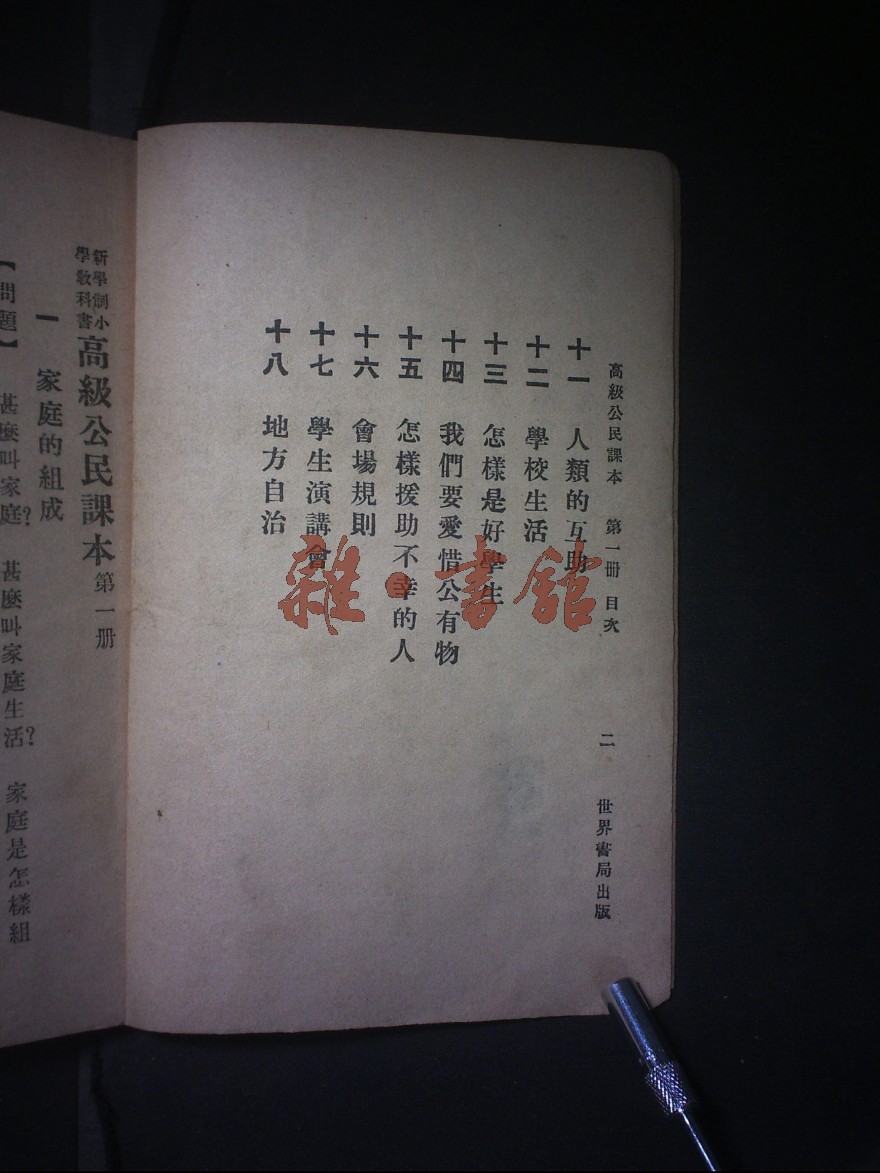 高級公民課本 第一册 目次 二 世界書局出版
十一 人類的互助
十二 學校生活
十三 怎樣是好學生
十四 我們要愛惜公有物
十五 怎樣援助不幸的人
十六 會場規則
十七 學生演講會
十八 地方自治
雜·書館
新學制小學教科書 高級公民課本 第一册
一 家庭的組成
【問題】 甚麼叫家庭? 甚麼叫家庭生活? 家庭是怎樣組